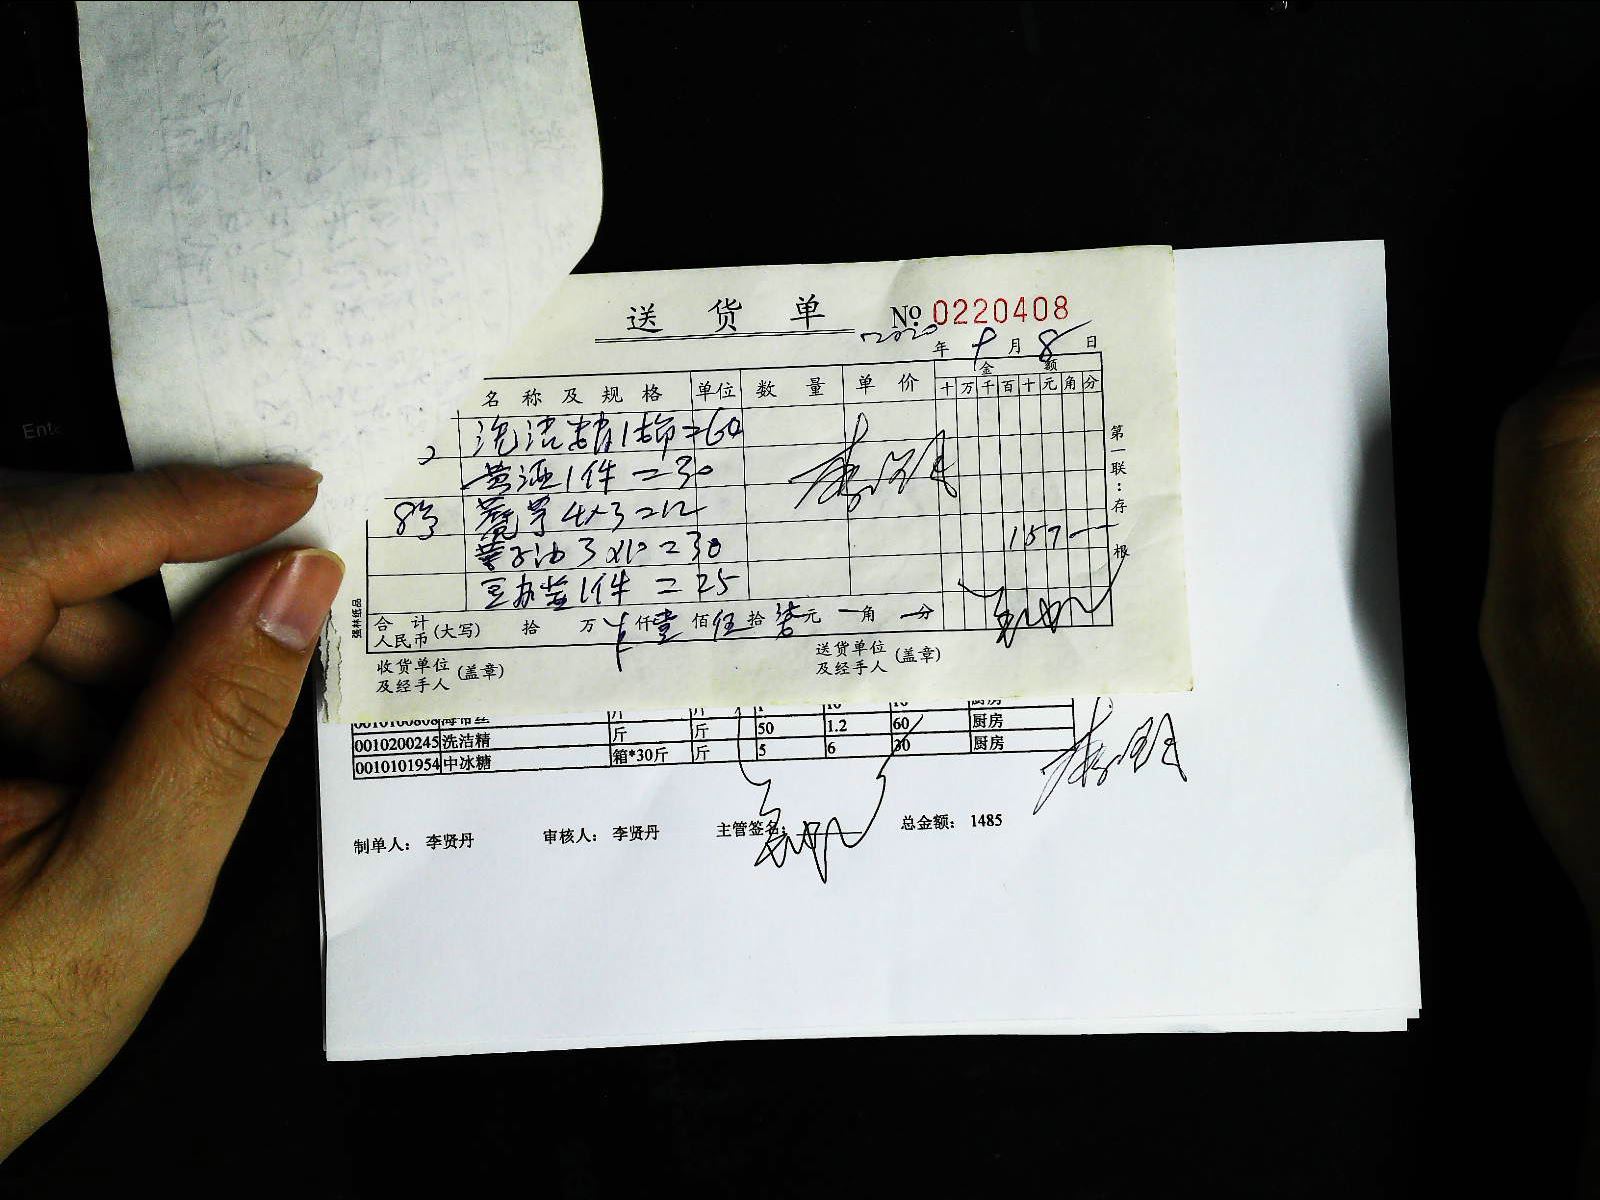 送货单 № 0220408
2020年9月8日
名称及规格 单位 数量 单价 金额
十万千百十元角分
洗洁精1桶=60
黄酒1件=30
8号 4×3=12
3×10=30
1件=25
157—
第一联:存根
合计人民币(大写) 拾 万 仟壹佰伍拾柒元一角一分
强林纸品
收货单位及经手人(盖章)
送货单位及经手人(盖章)
0010100808 海带丝 斤 斤 1 10 10 厨房
0010200245 洗洁精 斤 斤 50 1.2 60 厨房
0010101954 中冰糖 箱*30斤 斤 5 6 30 厨房
制单人: 李贤丹 审核人: 李贤丹 主管签名: 总金额: 1485
Ente